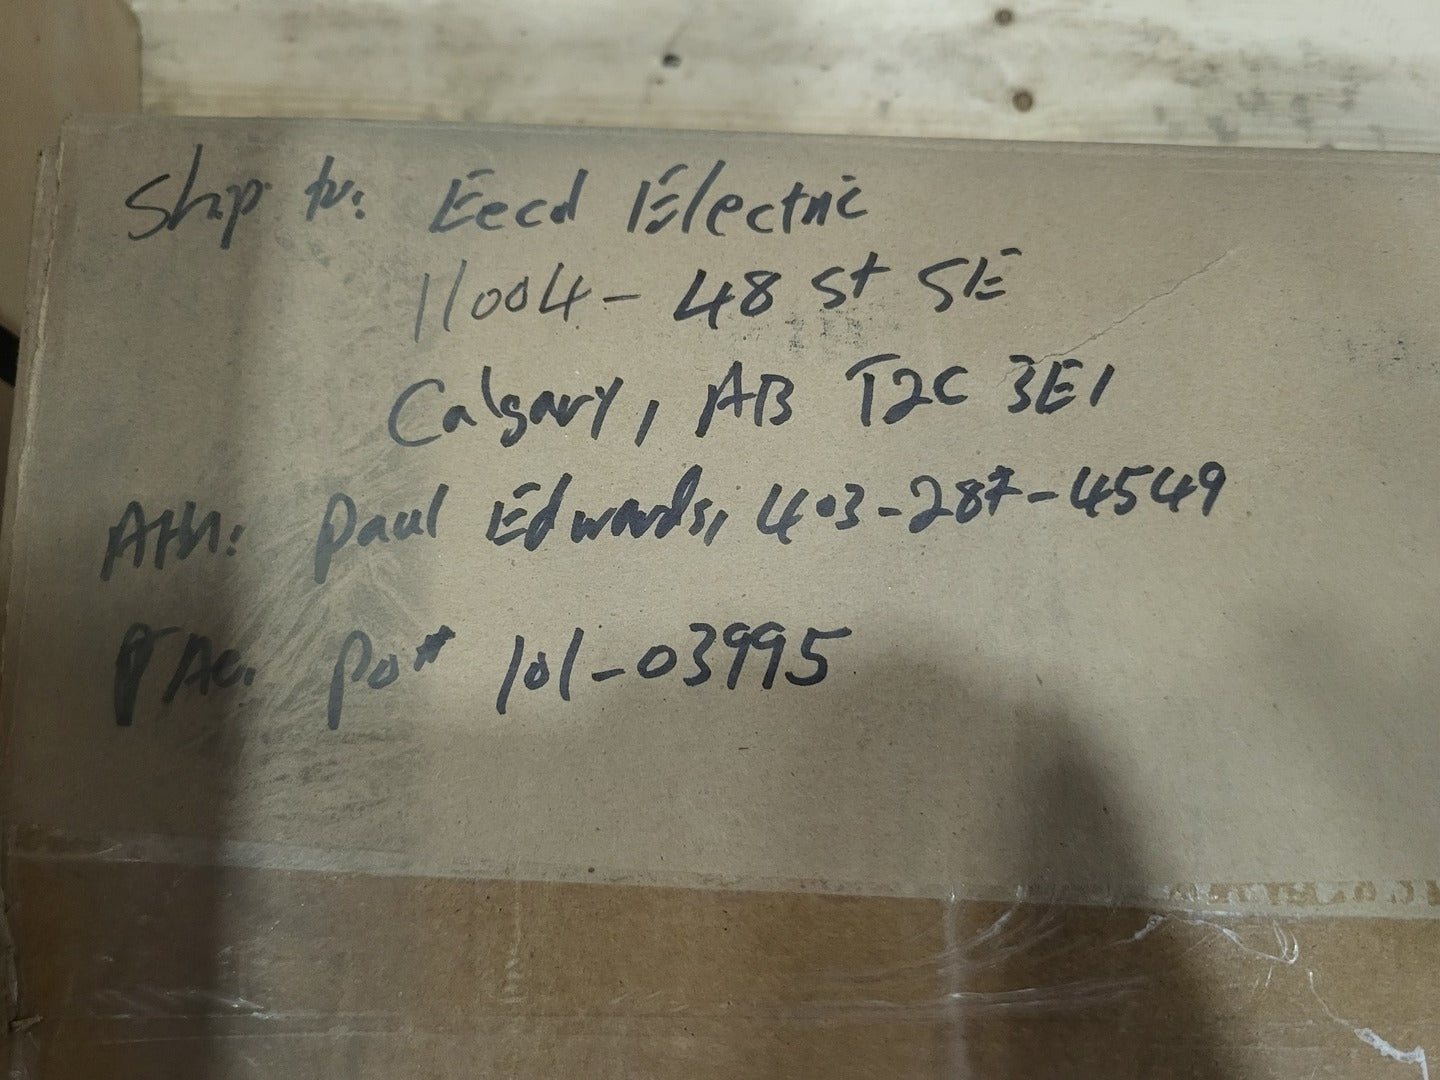 Ship to: Eecd Electric
11004 - 48 St SE
Calgary, AB T2C 3E1
Attn: Paul Edwards, 403-287-4549
PO# 101-03995